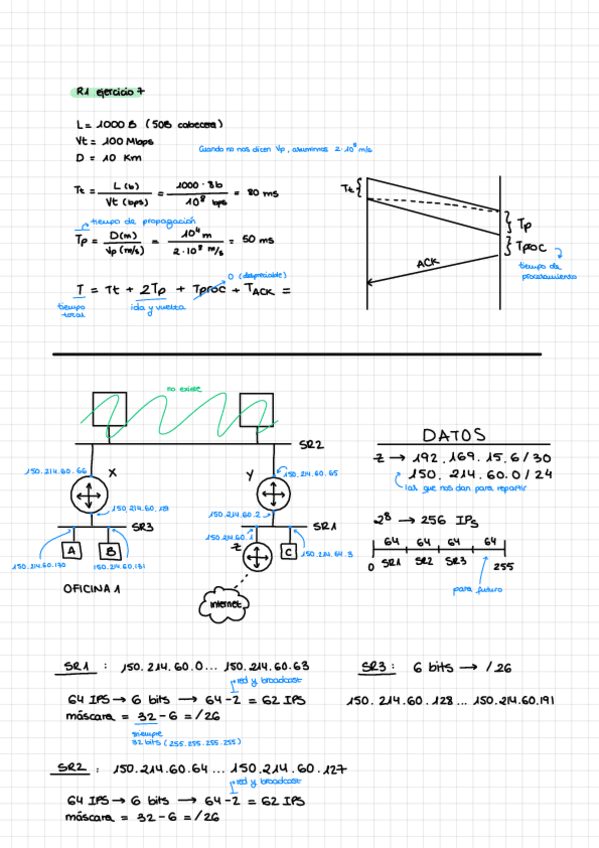 R1 ejercicio 7
L = 1000 B (50B cabecera)
Vt = 100 Mbps
D = 10 Km
Cuando no nos dicen Vp, asumimos 2·10⁸ m/s
Tt = L (b) / Vt (bps) = 1000 · 8b / 10⁸ bps = 80 ms
tiempo de propagación
Tp = D(m) / Vp (m/s) = 10⁴ m / 2·10⁸ m/s = 50 ms
0 (despreciable)
T = Tt + 2Tp + Tproc + TACK =
tiempo total
ida y vuelta
Tt
Tp
Tproc
tiempo de procesamiento
ACK
no existe
SR2
150.214.60.66
X
Y
150.214.60.65
150.214.60.2
SR3
SR1
150.214.60.1
Z
A
B
C
150.214.64.3
150.214.60.130
150.214.60.131
OFICINA 1
internet
DATOS
Z → 192.169.15.6/30
150.214.60.0/24
las que nos dan para repartir
2⁸ → 256 IPs
64 64 64 64
0 SR1 SR2 SR3 255
para futuro
SR1 : 150.214.60.0... 150.214.60.63
red y broadcast
64 IPS → 6 bits → 64-2 = 62 IPS
máscara = 32-6 = /26
siempre
32 bits (255.255.255.255)
SR2 : 150.214.60.64... 150.214.60.127
red y broadcast
64 IPS → 6 bits → 64-2 = 62 IPS
máscara = 32-6 = /26
SR3 : 6 bits → /26
150.214.60.128... 150.214.60.191